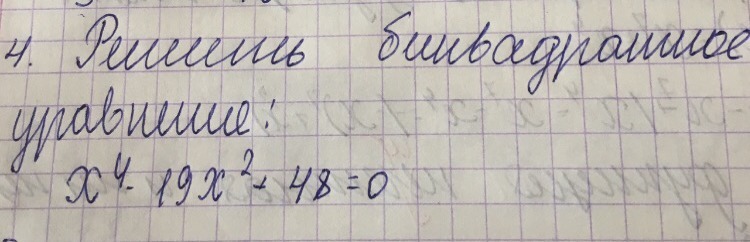 4. Решить биквадратное
уравнение:
x⁴ - 19x² + 48 = 0